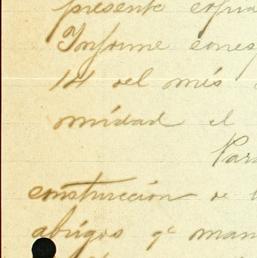 presente copia
Informe cores
14 del més
omidad el
Para
construcción de
abrigos qe man